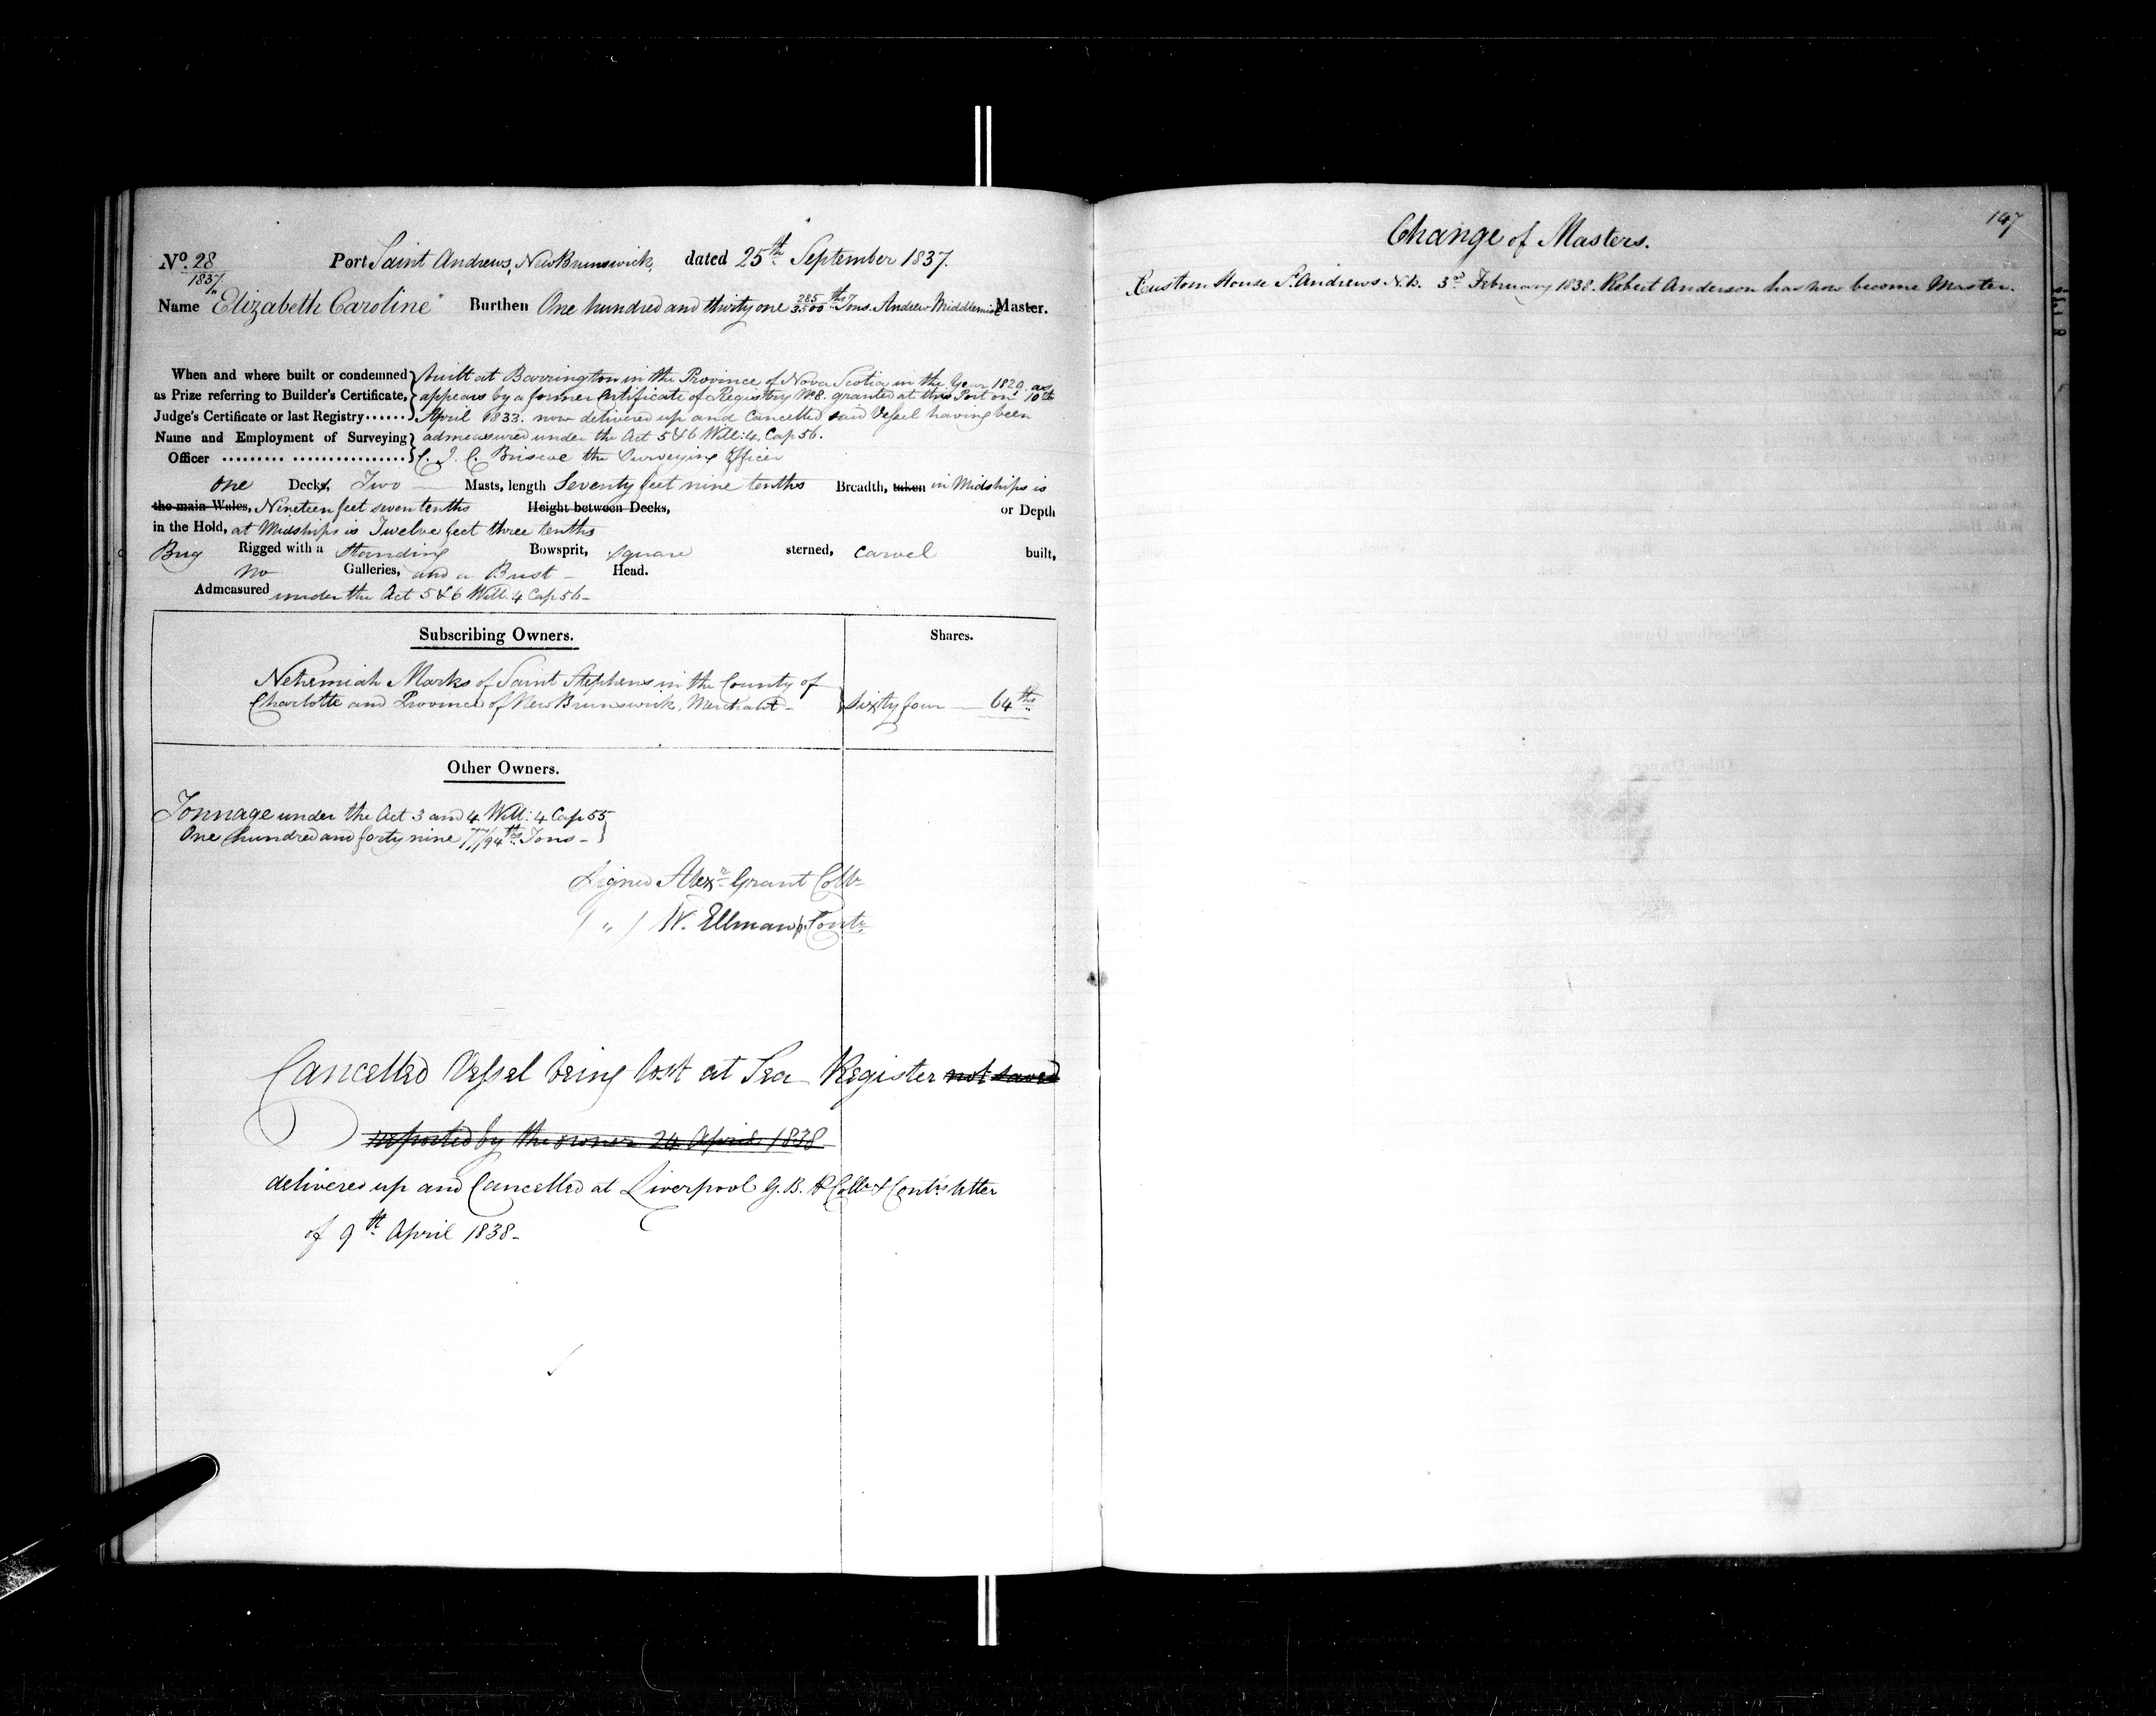 No. 28 Port Saint Andrews, New Brunswick, dated 25th September 1837.
1837
Name "Elizabeth Caroline" Burthen One hundred and thirty one 285/3500ths Tons. Andrew Middlemiss Master.
When and where built or condemned } built at Barrington in the Province of Nova Scotia in the Year 1829. as
as Prize referring to Builder's Certificate, } appears by a former Certificate of Registry No 8. granted at this Port on 10th
Judge's Certificate or last Registry...... } April 1833. now delivered up and Cancelled said Vessel having been
Name and Employment of Surveying } admeasured under the Act 5 & 6 Will: 4. Cap 56.
Officer ......... ................ } C. J. C. Briscoe the Surveying Officer
One Decks, Two — Masts, length Seventy feet nine tenths Breadth, taken in Midships is
the main Wales, Nineteen feet seven tenths Height between Decks, or Depth
in the Hold, at Midships is Twelve feet three tenths
Brig Rigged with a Standing Bowsprit, Square sterned, Carvel built,
No Galleries, and a Bust — Head.
Admeasured under the Act 5 & 6 Will. 4 Cap 56 —
Subscribing Owners. Shares.
Nehemiah Marks of Saint Stephens in the County of
Charlotte and Province of New Brunswick, Merchant — } Sixty four — 64ths
Other Owners.
Tonnage under the Act 3 and 4 Will: 4 Cap 55
One hundred and forty nine 77/94ths Tons — }
Signed Alexr Grant Collr
( " ) W. Ellman Contr
Cancelled Vessel being lost at Sea Register not saved
reported by the owner 24 April 1838
delivered up and Cancelled at Liverpool G. B. P Collr & Contr's letter
of 9th April 1838 —
147
Change of Masters.
Custom House St Andrews N.B. 3rd February 1838. Robert Anderson has now become Master.